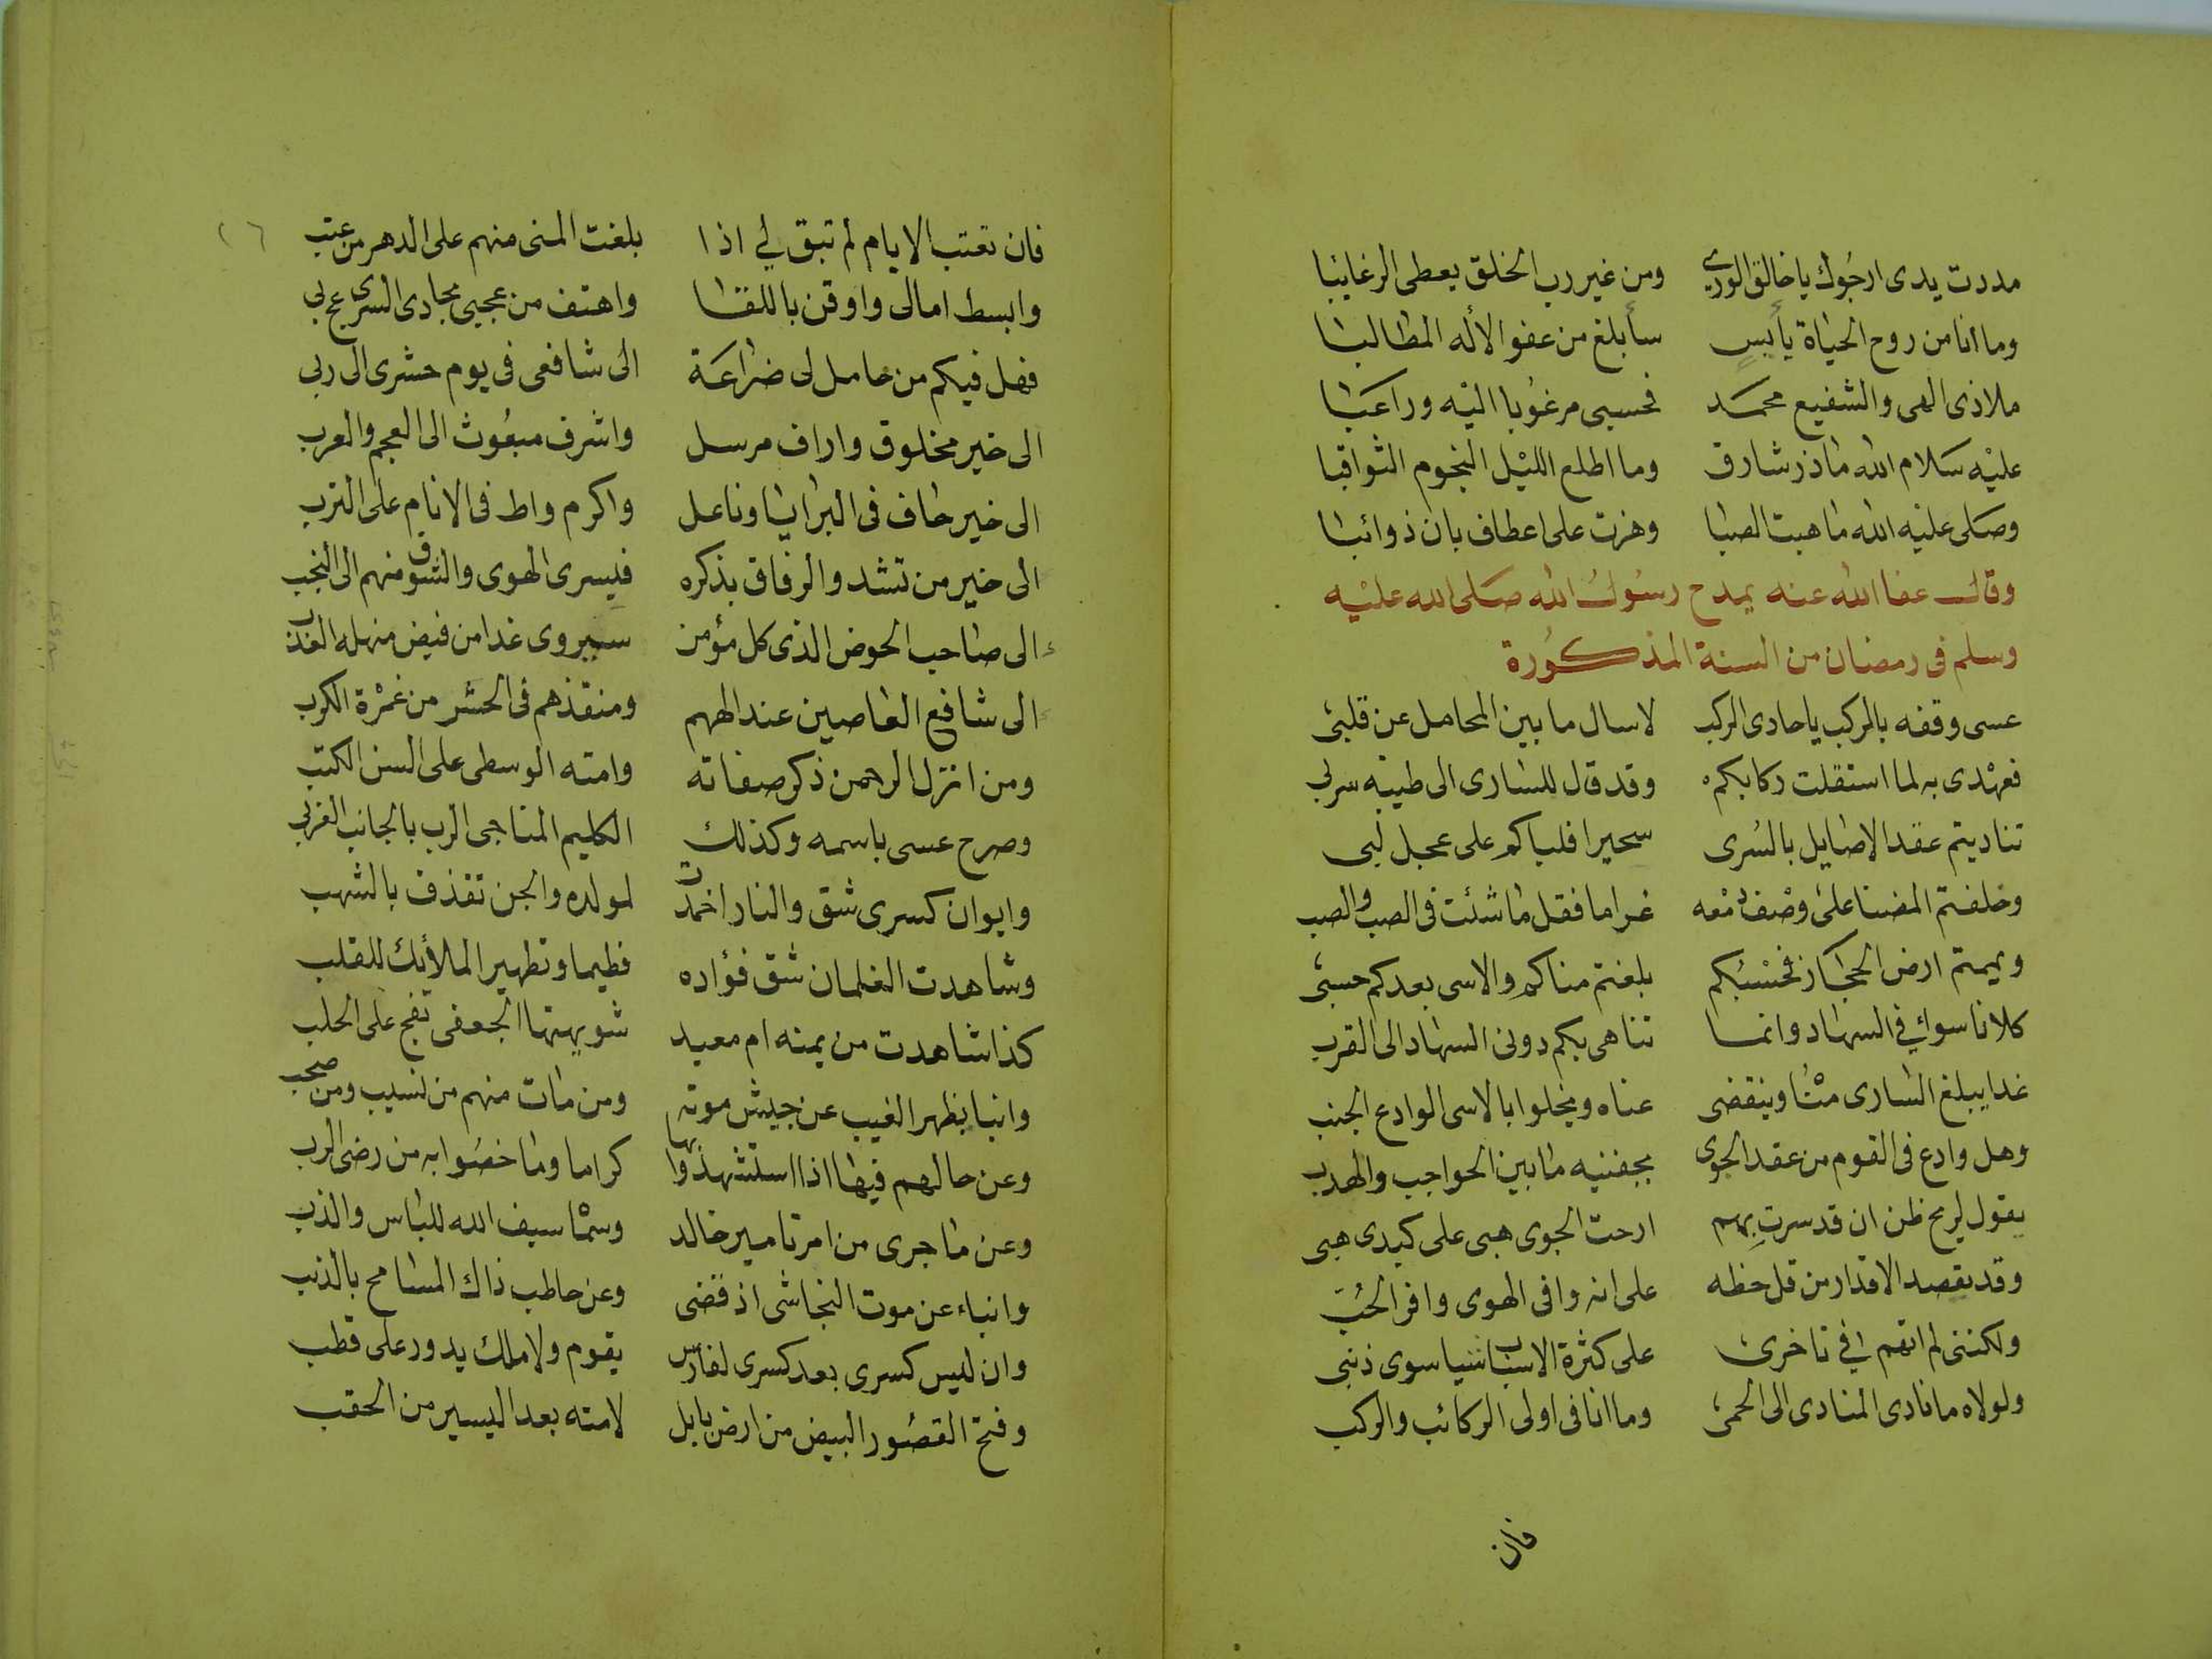 مددت يدى ارجوك يا خالق الورى ومن غير رب الخلق يعطى الرغايبا
وما أنا من روح الحياة يأيس سأبلغ من عفو الأله المطالبا
ملاذى الهى والشفيع محمد فحسبى مرغوبا اليه وراغبا
عليه سلام الله ماذر شارق وما اطلع الليل النجوم الثواقبا
وصلى عليه الله ما هبت الصبا وهزت على اعطاف بان ذوائبا
وقال عفا الله عنه يمدح رسول الله صلى الله عليه
وسلم فى رمضان من السنة المذكورة
عسى وقفه بالركب يا حادى الركب لاسال ما بين المحامل عن قلبى
فعهدى به لما استقلت ركابكم وقد قال للسارى الى طيبه سربى
تناديتم عقد الاصايل بالسرى سحيرا فلباكم على عجل لبى
وخلفتم المضنا على وصف دمعه غراما فقل ما شئت فى الصب والصب
ويممتم ارض الحجاز فحسبكم بلغتم مناكم والاسى بعدكم حسبى
كلانا سواي في السهاد وانما تناهى بكم دونى السهاد الى القرب
غدا يبلغ السارى منا وينقضى عناه ويخلوا بالاسى الوادع الجنب
وهل وادع فى القوم من عقد الجوى بجفنيه ما بين الحواجب والهدب
يقول لريح ظن ان قد سرت بهم ارحت الجوى هبى على كبدى هبى
وقد يقصد الاقدار من قل حظه على انه وافى الهوى وافر الحب
ولكننى لم اتهم في تاخرى على كثرة الاسباب شيا سوى ذنبى
ولولاه ما نادى المنادى الى الحمى وما انا فى اولى الركائب والركب
فان
فان تعتب الايام لم تبق لي اذا بلغت المنى منهم على الدهر من عتب
وابسط امالى واوقن باللقا واهتف من عجبى بحادى السرى عج بى
فهل فيكم من حامل لى ضراعة الى شافعى فى يوم حشرى الى ربى
الى خير مخلوق واراف مرسل واشرف مبعوث الى العجم والعرب
الى خير حاف فى البرايا وناعل واكرم واط فى الانام على الترب
الى خير من تشد والرفاق بذكره فيسرى الهوى والشوق منهم الى النجب
الى صاحب الحوض الذى كل مؤمن سيروى غدا من فيض منهله العذب
الى شافع العاصين عند الههم ومنقذهم فى الحشر من غمرة الكرب
ومن انزل الرحمن ذكر صفاته وامته الوسطى على السن الكتب
وصرح عسى باسمه وكذلك الكليم المناجى الرب بالجانب الغربى
وايوان كسرى شق والنار اخمدت لمولده والجن تقذف بالشهب
وشاهدت الغلمان شق فؤاده فطيما وتطهير الملأيك للقلب
كذا شاهدت من يمنه ام معبد شويهتها الجعفى تفج على الحلب
وانبا بظهر الغيب عن جيش موته ومن مات منهم من نسيب ومن صحب
وعن حالهم فيها اذا استشهدوا بها كراما وما خصوا به من رضى الرب
وعن ما جرى من امر تامير خالد وسما سيف الله للباس والذب
وانباء عن موت النجاشى اذ قضى وعن حاطب ذاك المسامح بالذنب
وان ليس كسرى بعد كسرى لفارس يقوم ولا ملك يدور على قطب
وفتح القصور البيض من ارض بابل لامته بعد اليسير من الحقب